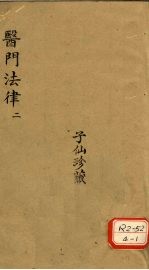 醫門法律 二
子仙珍藏
R2-52
4-1